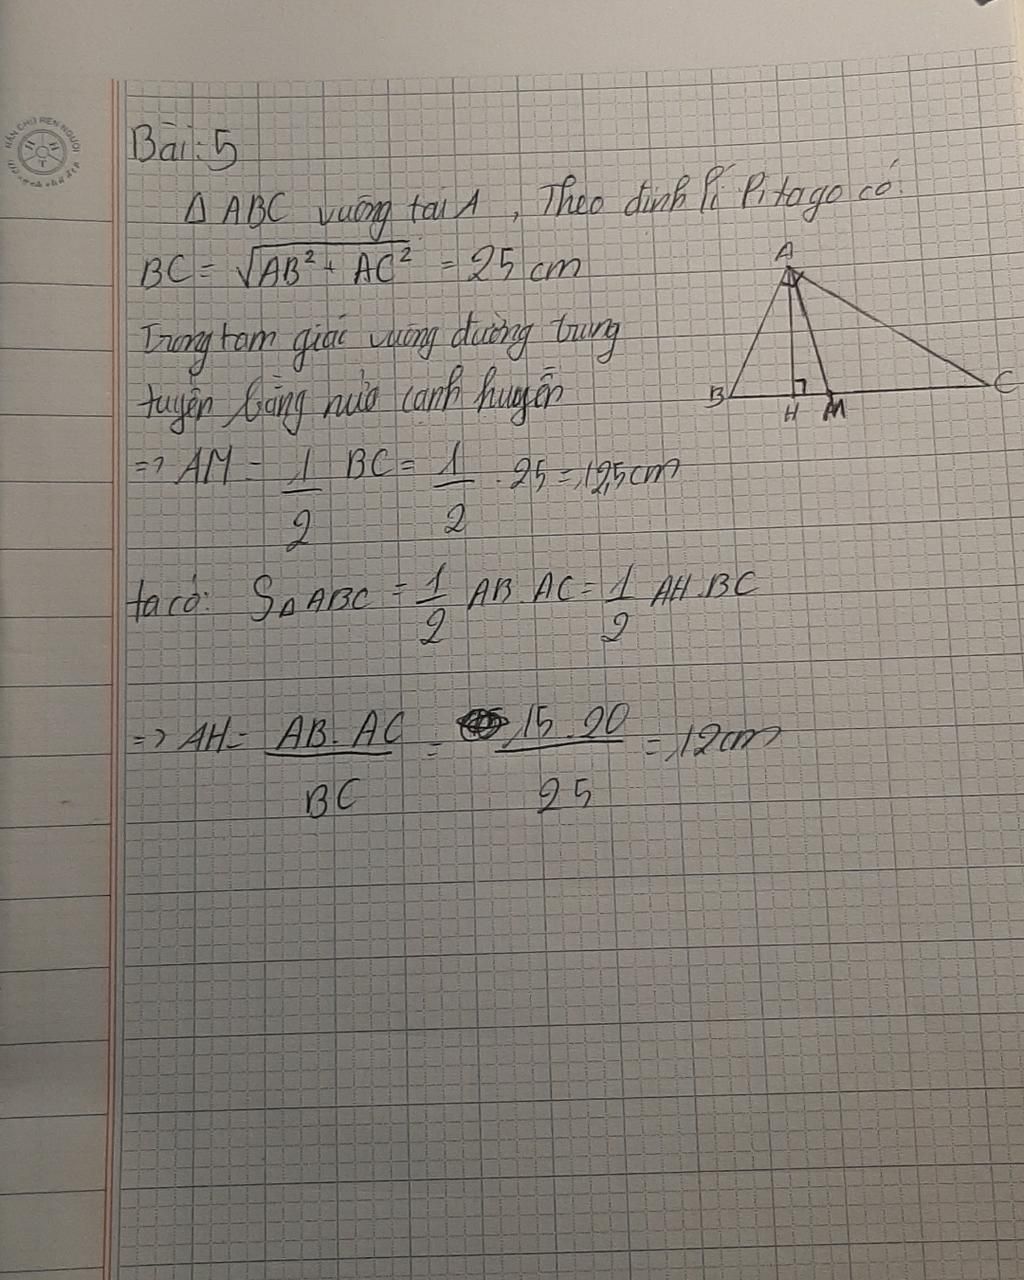 Bài: 5
Δ ABC vuông tại A, Theo định lí Pitago có:
BC = √AB² + AC² = 25 cm
Trong tam giác vuông đường trung
tuyến bằng nửa cạnh huyền
=> AM = 1/2 BC = 1/2 . 25 = 12,5 cm
ta có: SΔABC = 1/2 AB. AC = 1/2 AH.BC
=> AH = AB. AC / BC = 15.20 / 25 = 12cm
A
B
H
M
C